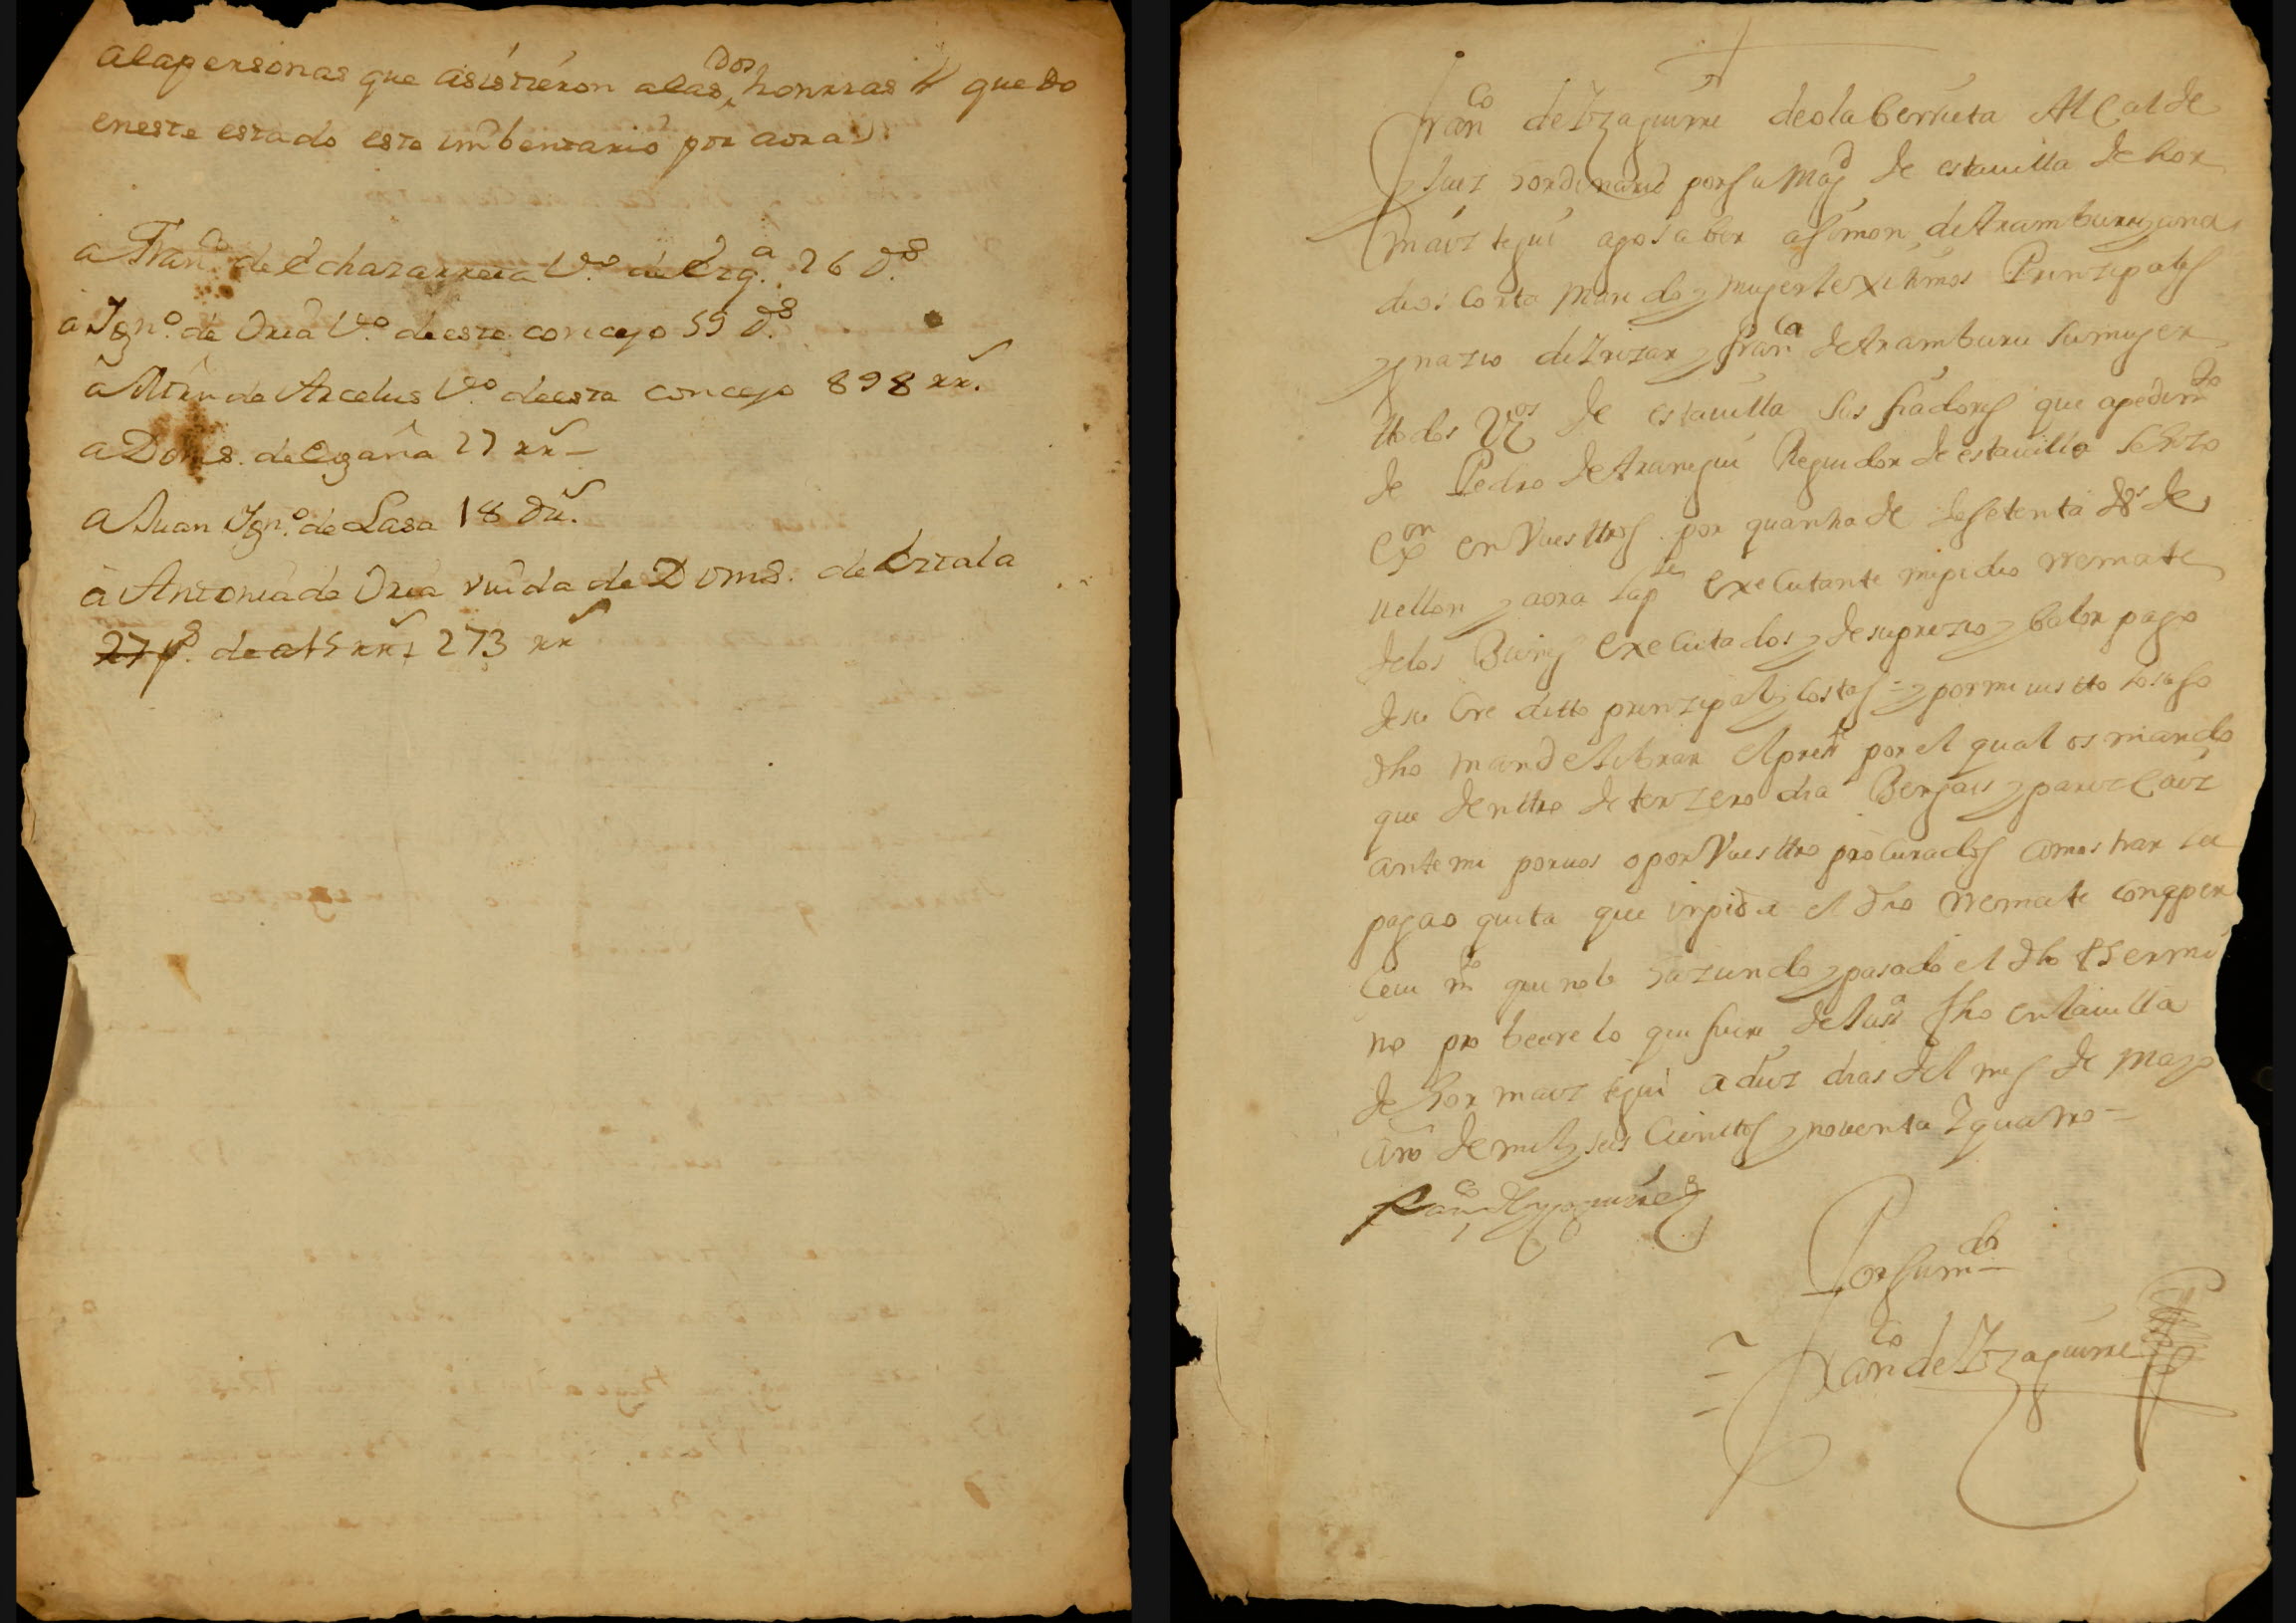 alapersonas que asistieron alas dos honrras y quedo
eneste estado este imbentario por aora
a Franco. de Echazarreta Vo. de Ezga. 26 ds.
a Igno. de Oria Vo. de este concejo 59 ds.
a Mrn de Arcelus Vo. deeste concejo 898 rr.
a Doms. de Egaña 27 rr
a Juan Igno. de Lasa 18 du.
a Antonia de Oria viuda de Doms. de Erzala
27 ps. de a 15 rrs 273 rr
Franco de Yzaguirre deolaberrieta Alcalde
y Juez hordinario por su Magd de estauilla de hor
maiztegui ago saber a Simon de Aramburu y ana
dios Corta marido y mujer lexitimos Prinzipales
ygnazio de Yrizar y franca de Aramburu su mujer
ttodos Vezos de estauilla sus fiadores que apedimto
de Pedro de Aranegui Regidor de estauilla se hizo
exon en Vuesttros por quantia de desetenta ds de
uellon y aora la pte executante me pidio rremate
delos Bienes executados y de suprezio y balor pago
de su Creditto prinzipal y costas = y por mi uistto losuso
dho mande librar el preste por el qual os mando
que denttro de terzero dia Bengais y parezcaiz
ante mi poruos o por Vuesttro procurador amostrar la
paga o quita que inpida el dho rremate con aper
ceuimto que nolo haziendo y pasado el dho termi
no probeere lo que fuere de Jusa fho en la uilla
de hormaiztegui a diez dias del mes de mayo
año de mil y seis cienttos y nouenta y quatro =
Franco de Yzaguirre
Por su mdo
Franco de Yzaguirre